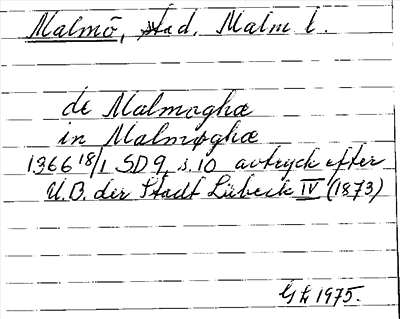 Malmö, stad, Malm l.
de Malmoghæ
in Malmøghæ
1366 18/1 SD 9, s. 10 avtryck efter
U.B. der Stadt Lübeck IV (1873)
1975.